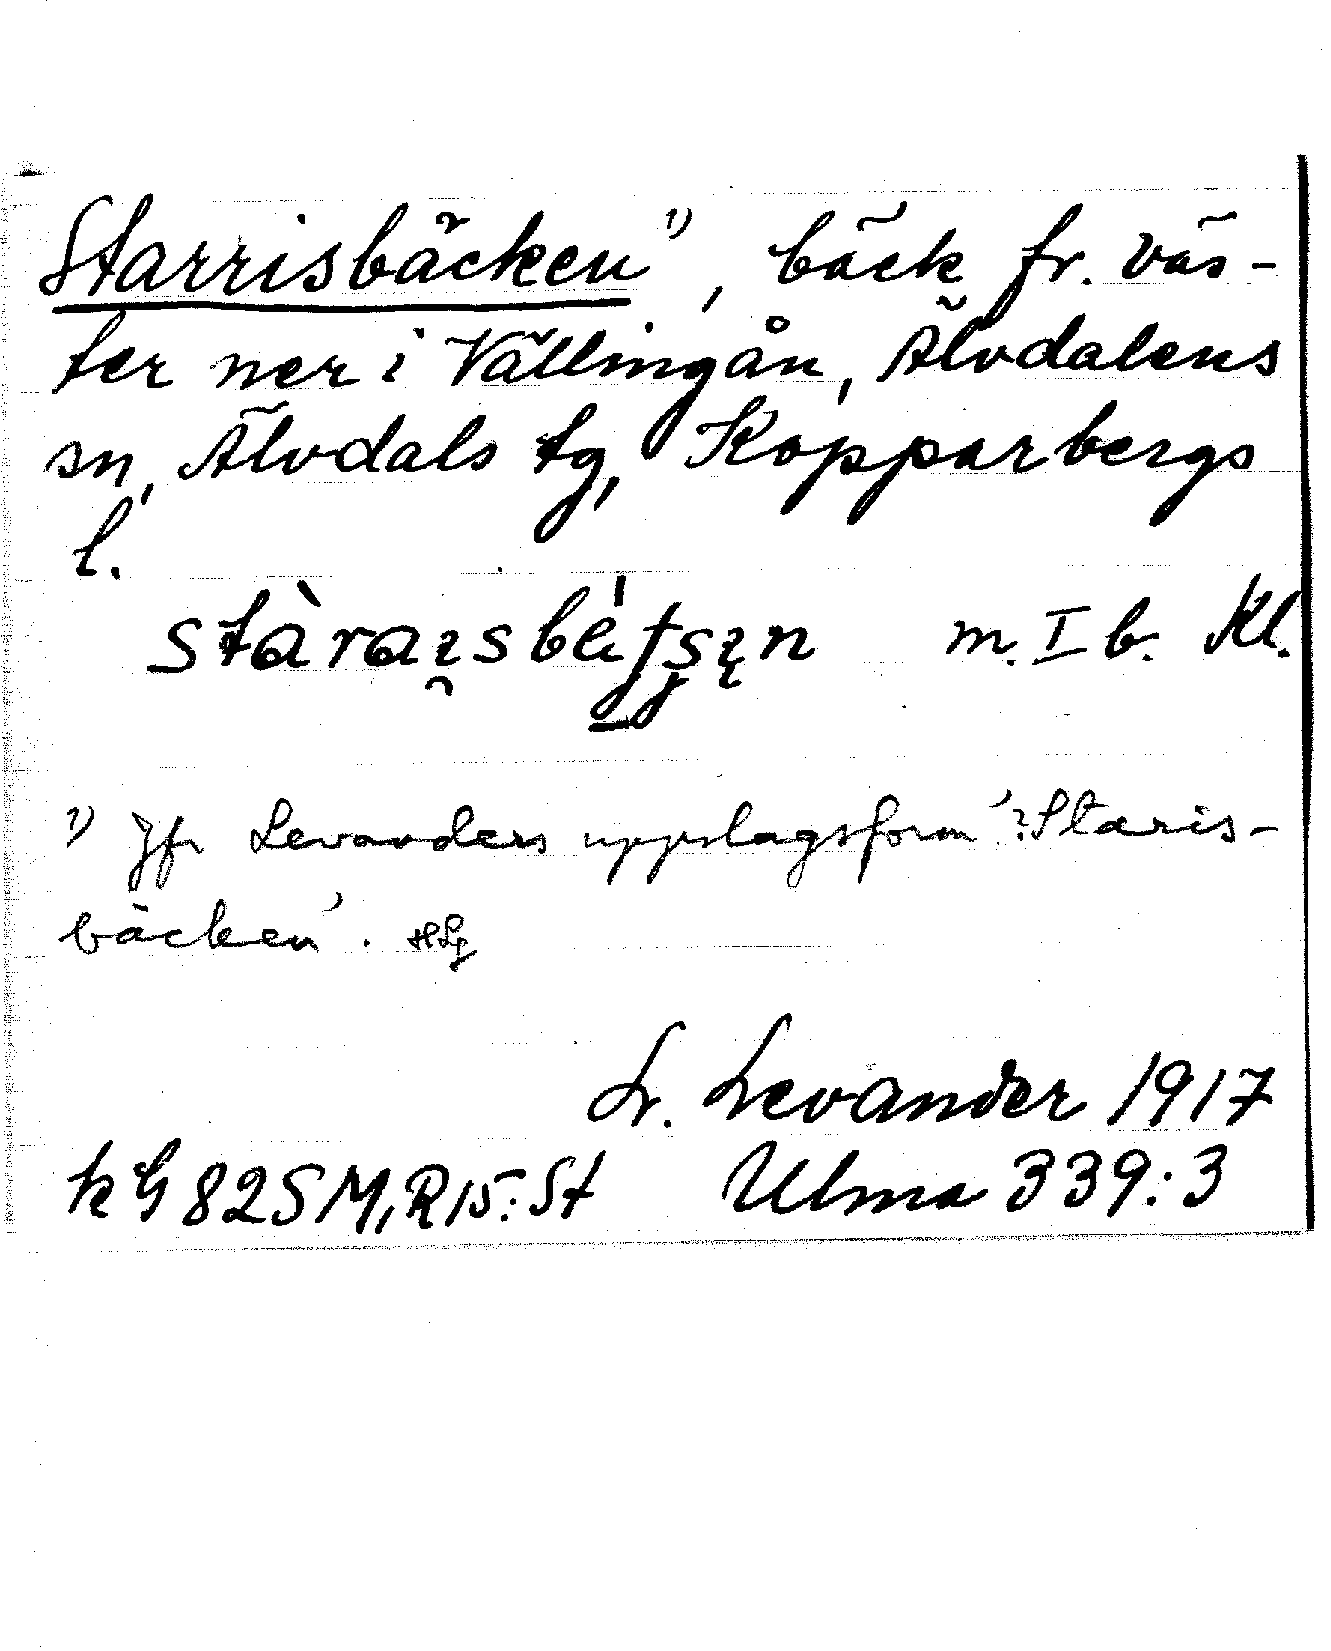 Starrisbäcken ¹⁾, bäck fr. väs-
ter ner i Vällingån, Älvdalens
sn, Älvdals tg, Kopparbergs
l.
m. I b. Kl.
¹⁾ Jfr Levanders uppslagsform '?Staris-
bäcken'. HLg
L. Levander 1917
kG 82SM,R15:St Ulma 339:3